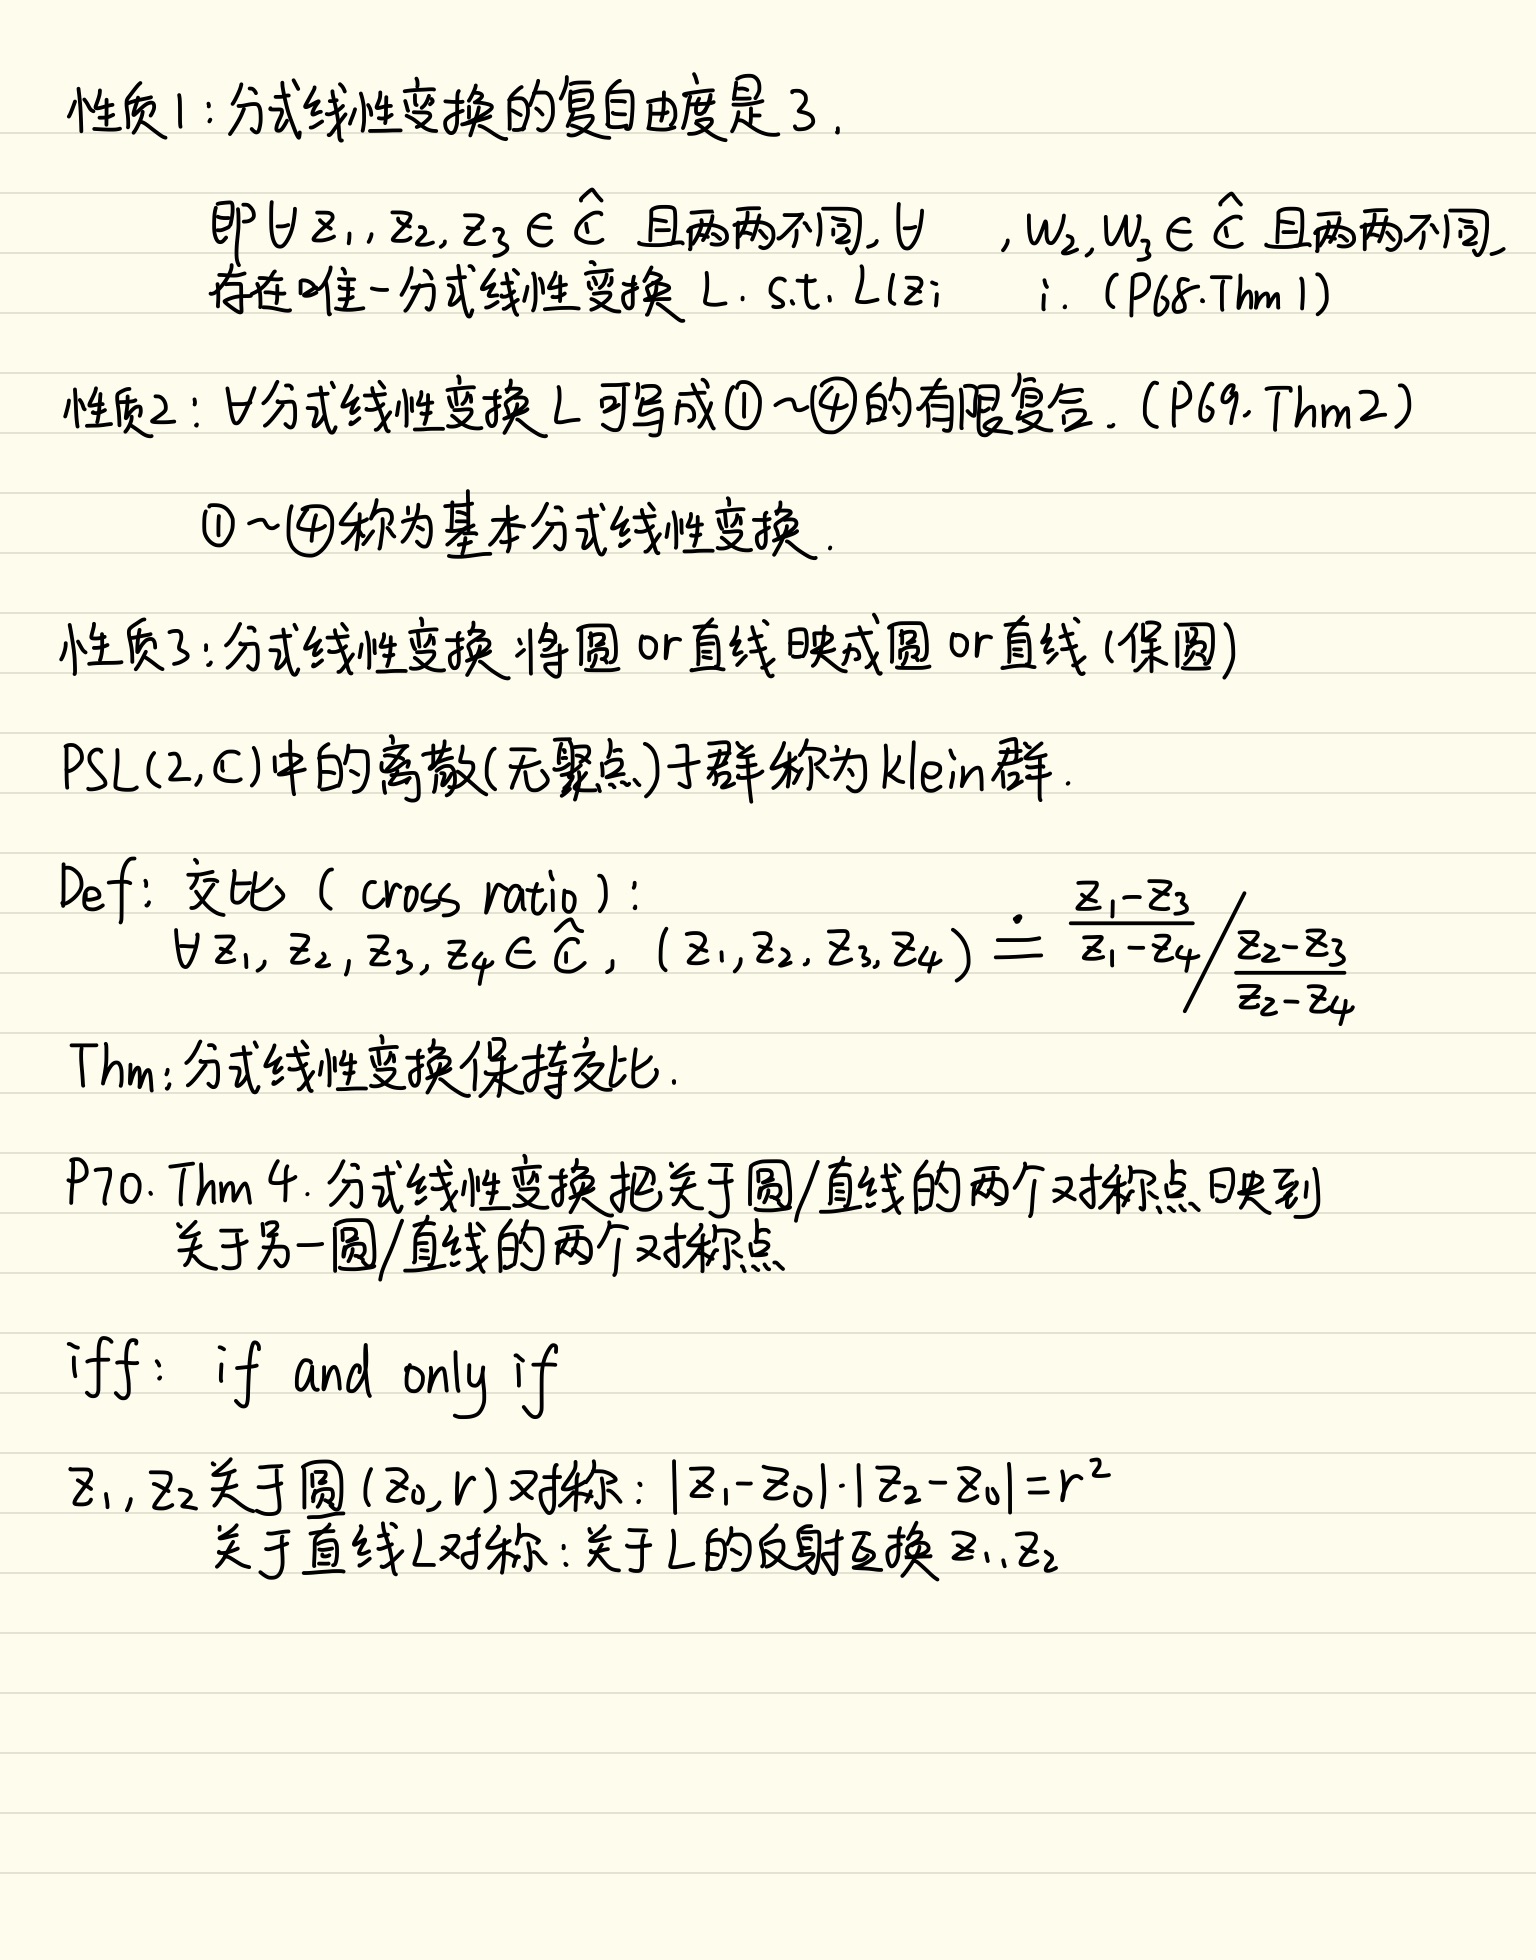 性质1：分式线性变换的复自由度是3.
即∀z₁, z₂, z₃∈Ĉ 且两两不同, ∀ , w₂, w₃∈Ĉ 且两两不同,
存在唯一分式线性变换 L. s.t. L(zᵢ i. (P68.Thm 1)
性质2：∀分式线性变换 L 可写成①~④的有限复合. (P69. Thm 2)
①~④称为基本分式线性变换.
性质3：分式线性变换 将圆 or 直线 映成圆 or 直线 (保圆)
PSL(2,ℂ)中的离散(无聚点)于群称为klein群.
Def: 交比 ( cross ratio ):
∀z₁, z₂, z₃, z₄∈Ĉ, (z₁, z₂, z₃, z₄) ≐ (z₁-z₃)/(z₁-z₄) / (z₂-z₃)/(z₂-z₄)
Thm: 分式线性变换保持交比.
P70. Thm 4. 分式线性变换把关于圆/直线的两个对称点映到
关于另一圆/直线的两个对称点
iff: if and only if
z₁, z₂关于圆(z₀, r)对称: |z₁-z₀|·|z₂-z₀|=r²
关于直线L对称: 关于L的反射互换 z₁, z₂